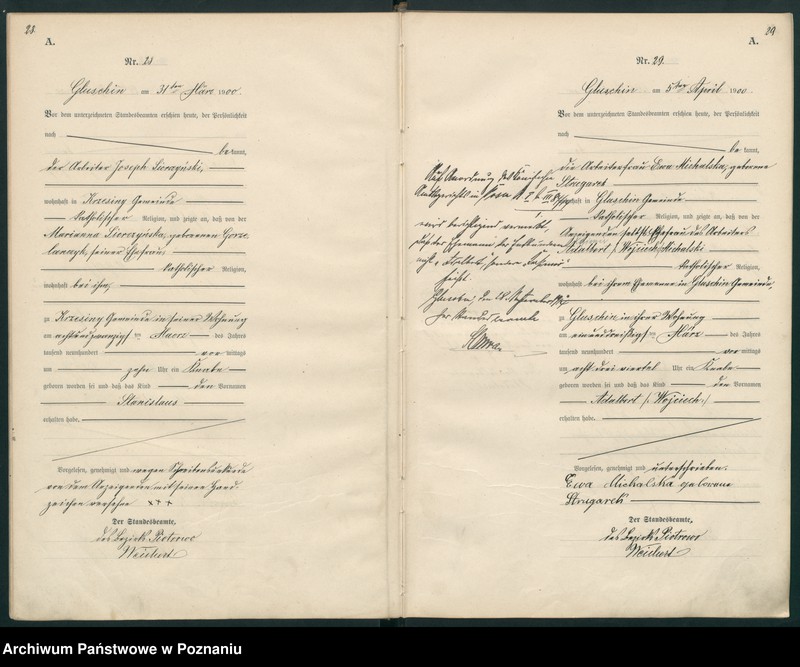 28
A.
Nr. 28
Gluschin am 31ten März 1900.
Vor dem unterzeichneten Standesbeamten erschien heute, der Persönlichkeit
nach
bekannt,
der Arbeiter Joseph
wohnhaft in Krzesiny Gemeinde
Katholischer Religion, und zeigte an, daß von der
Marianna geborenen
seiner Ehefrau
Katholischer Religion,
wohnhaft bei ihm,
zu Krzesiny Gemeinde in seiner Wohnung
am achtundzwanzigsten Maerz des Jahres
tausend neunhundert vor mittags
um zehn Uhr ein Knabe
geboren worden sei und daß das Kind den Vornamen
Stanislaus
erhalten habe.
Vorgelesen, genehmigt und wegen
von dem Anzeigenden mit seinem Hand-
zeichen versehen xxx
Der Standesbeamte,
des Bezirks Piotrowo
Weichert
29
A.
Nr. 29.
Gluschin am 5ten April 1900.
Vor dem unterzeichneten Standesbeamten erschien heute, der Persönlichkeit
nach
bekannt,
die Arbeiterfrau Ewa Michalska, geborene
Strugarek
wohnhaft in Gluschin Gemeinde
Katholischer Religion, und zeigte an, daß von der
Anzeigenden selbst, Ehefrau des Arbeiters
Adalbert (Wojciech) Michalski
Katholischer Religion,
wohnhaft bei ihrem Ehemanne in Gluschin Gemeinde,
zu Gluschin in ihrer Wohnung
am einunddreißigsten März des Jahres
tausend neunhundert vor mittags
um acht drei viertel Uhr ein Knabe
geboren worden sei und daß das Kind den Vornamen
Adalbert (:Wojciech:)
erhalten habe.
Vorgelesen, genehmigt und unterschrieben.
Ewa Michalska geborene
Strugarek
Der Standesbeamte,
des Bezirks Piotrowo
Weichert
Auf Anordnung des
Amtsgerichts in Posen
wird berichtigend vermerkt,
daß der Ehemann der
nicht "Adalbert" sondern
heißt.
den 28. September
Der Standesbeamte
Archiwum Państwowe w Poznaniu